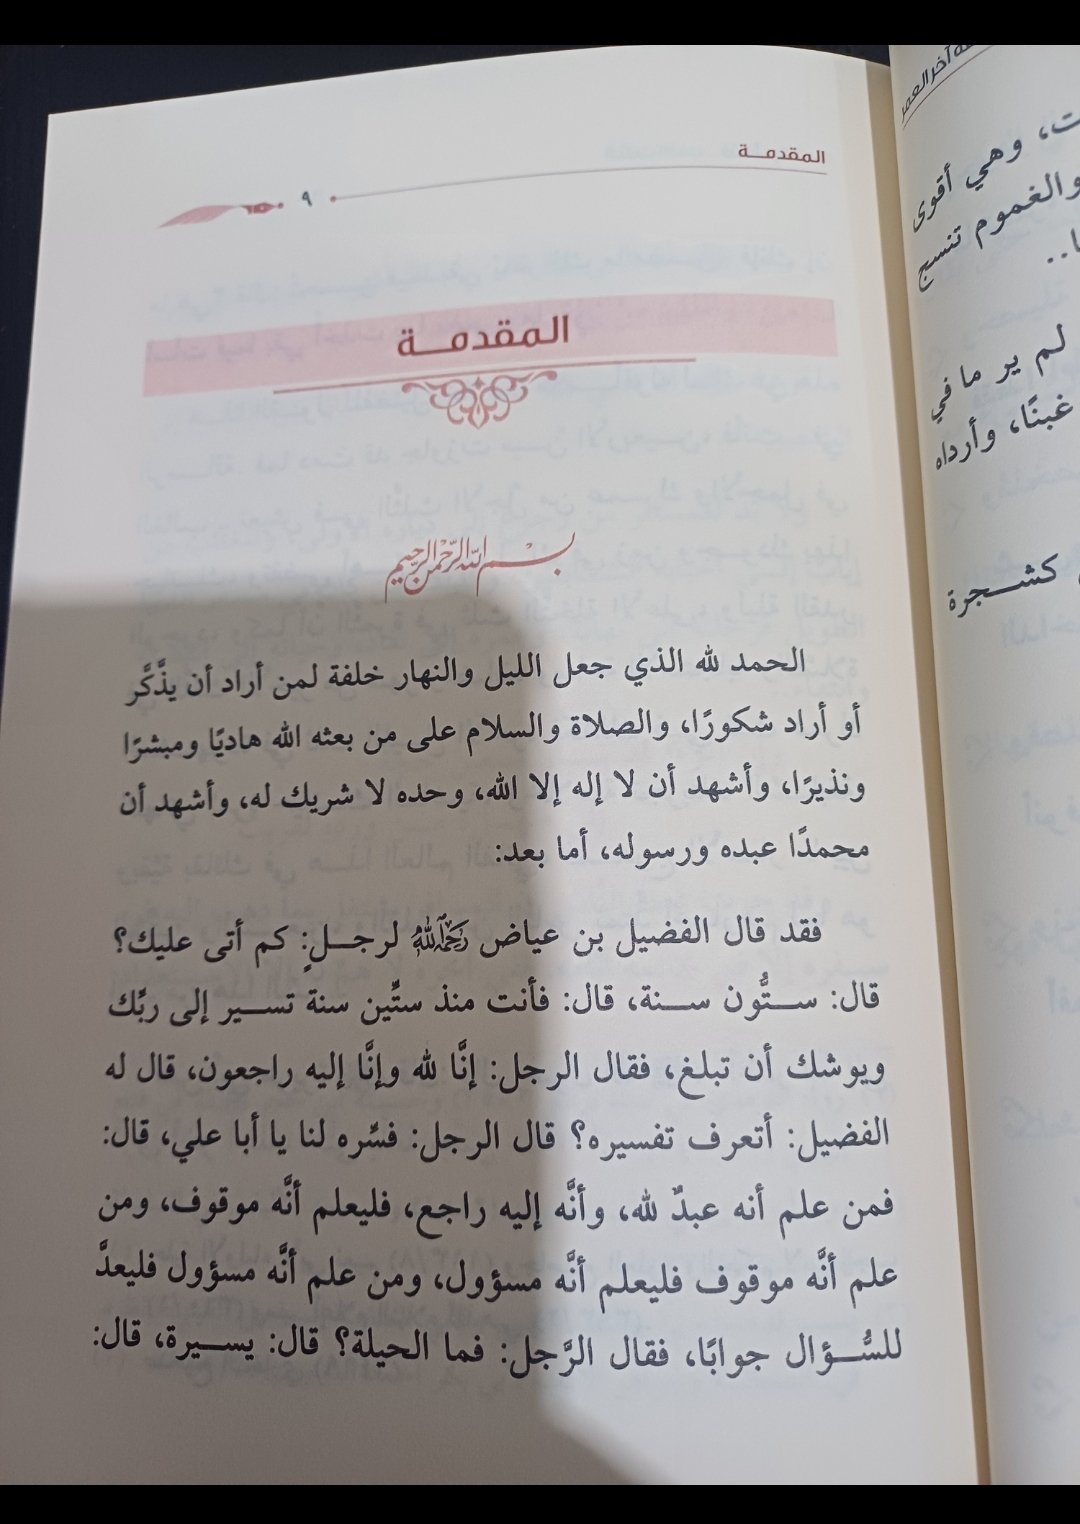 المقدمـــة
٩
المقدمـــة
بسم الله الرحمن الرحيم
الحمد لله الذي جعل الليل والنهار خلفة لمن أراد أن يذَّكَّر
أو أراد شكورًا، والصلاة والسلام على من بعثه الله هاديًا ومبشرًا
ونذيرًا، وأشهد أن لا إله إلا الله، وحده لا شريك له، وأشهد أن
محمدًا عبده ورسوله، أما بعد:
فقد قال الفضيل بن عياض رَحِمَهُ اللَّهُ لرجــلٍ: كم أتى عليك؟
قال: ســتُّون ســنة، قال: فأنت منذ ستِّين سنة تســير إلى ربِّك
ويوشك أن تبلغ، فقال الرجل: إنَّا لله وإنَّا إليه راجعون، قال له
الفضيل: أتعرف تفسيره؟ قال الرجل: فسَّره لنا يا أبا علي، قال:
فمن علم أنه عبدٌ لله، وأنَّه إليه راجع، فليعلم أنَّه موقوف، ومن
علم أنَّه موقوف فليعلم أنَّه مسؤول، ومن علم أنَّه مسؤول فليعدَّ
للسُّــؤال جوابًا، فقال الرَّجل: فما الحيلة؟ قال: يســيرة، قال:
آخر العمر
ت، وهي أقوى
والغموم تنسج
ا..
لم ير ما في
غبنًا، وأرداه
كشــجرة